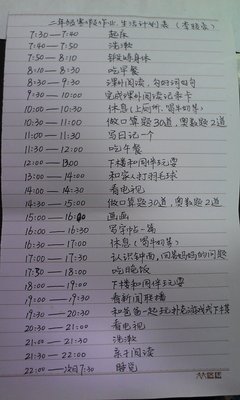 二年级寒假作业、生活计划表（李
7:30 — 7:40 起床
7:40 — 7:50 洗漱
7:50 — 8:10 锻炼身体
8:10 — 8:30 吃早餐
8:30 — 9:30 课外阅读，勾好词好句
9:30 — 10:00 完成课外阅读记录卡
10:00 — 10:30 休息（上厕所、喝牛奶等）
10:30 — 11:00 做口算题30道，奥数题2道
11:00 — 11:30 写日记一个
11:30 — 12:00 吃午餐
12:00 — 13:00 下楼和同伴玩耍
13:00 — 14:00 和家人打羽毛球
14:00 — 14:30 看电视
14:30 — 15:00 做口算题30道，奥数题2道
15:00 — 16:00 画画
16:00 — 16:30 写字帖一篇
16:30 — 17:00 休息（喝牛奶等）
17:00 — 17:30 认识钟面，回答妈妈的问题
17:30 — 18:00 吃晚饭
18:00 — 19:00 下楼和同伴玩耍
19:00 — 19:30 看新闻联播
19:30 — 20:30 和爸爸一起玩扑克游戏或下棋
20:30 — 21:00 看电视
21:00 — 21:30 洗漱
21:30 — 22:00 亲子阅读
22:00 — 次日7:30 睡觉